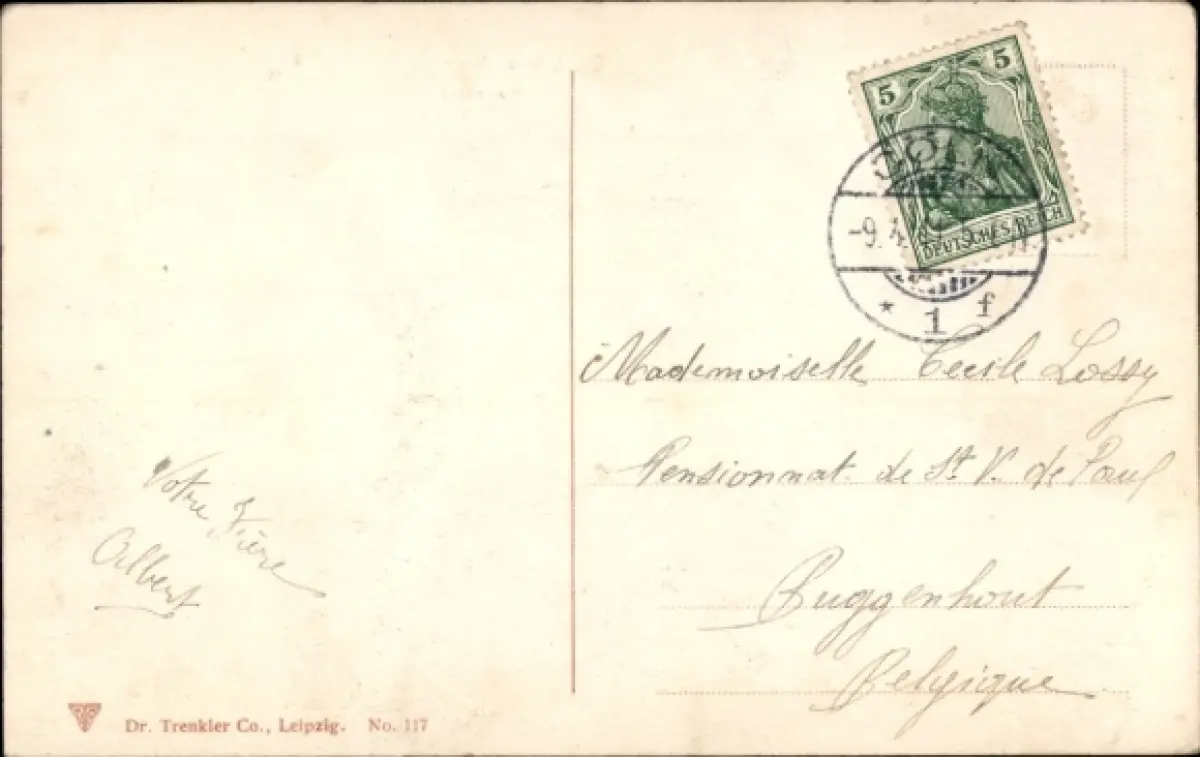 5 5
DEUTSCHES REICH
CÖLN
-9. 4.
* 1 f
Mademoiselle Cecile Lossy
Pensionnat de St. V. de Paul
Buggenhout
Belgique
Votre Frère
Albert
Dr. Trenkler Co., Leipzig. No. 117